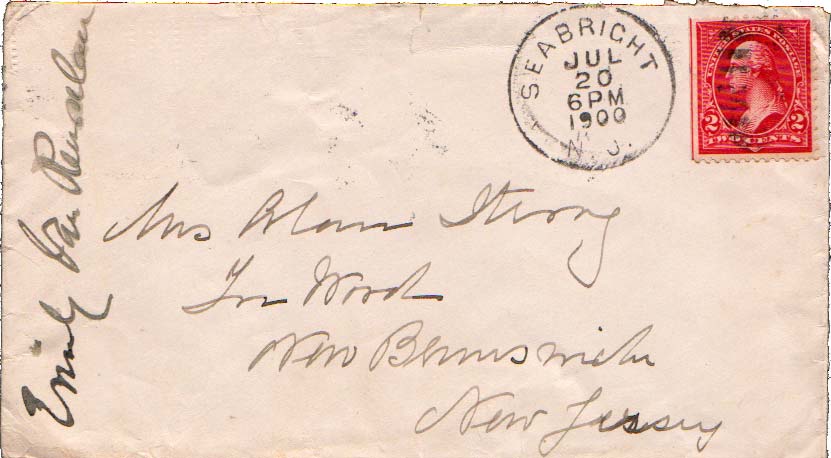 SEABRIGHT
JUL
20
6PM
1900
N. J.
UNITED STATES POSTAGE
2 2
TWO CENTS
Emily Van
Mrs Strong
New Brunswick
New Jersey